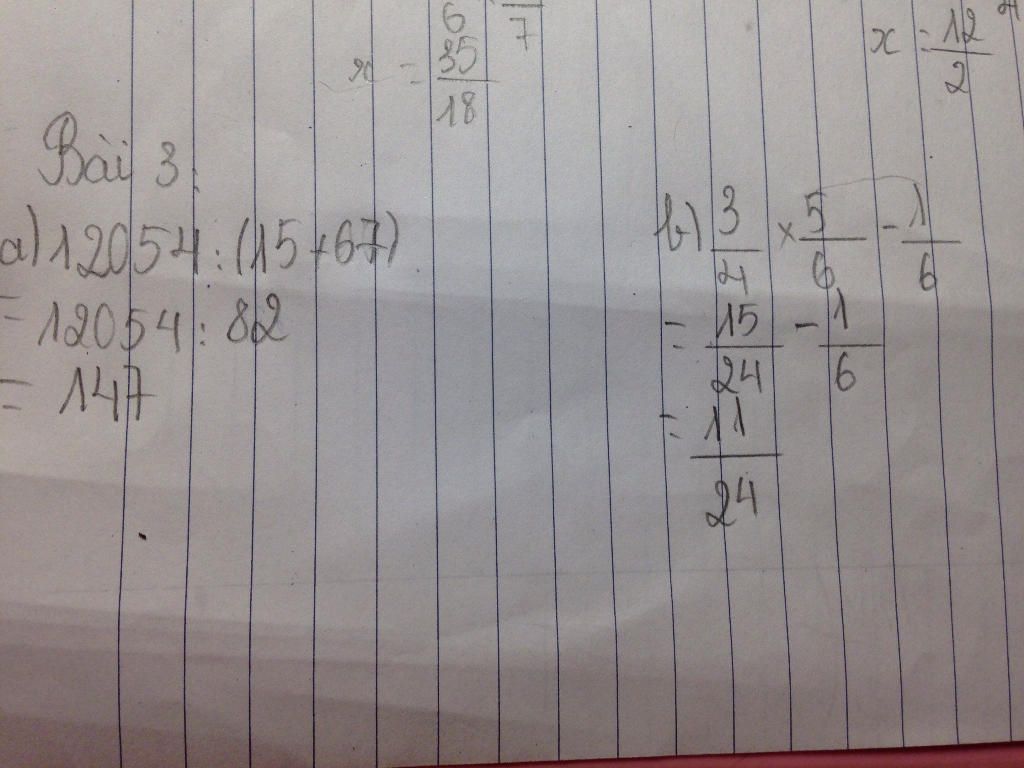 6 7
x = 35/18
x = 12/2
Bài 3:
a) 12054 : (15 + 67)
= 12054 : 82
= 147
b) 3/4 × 5/6 - 1/6
= 15/24 - 1/6
= 11/24